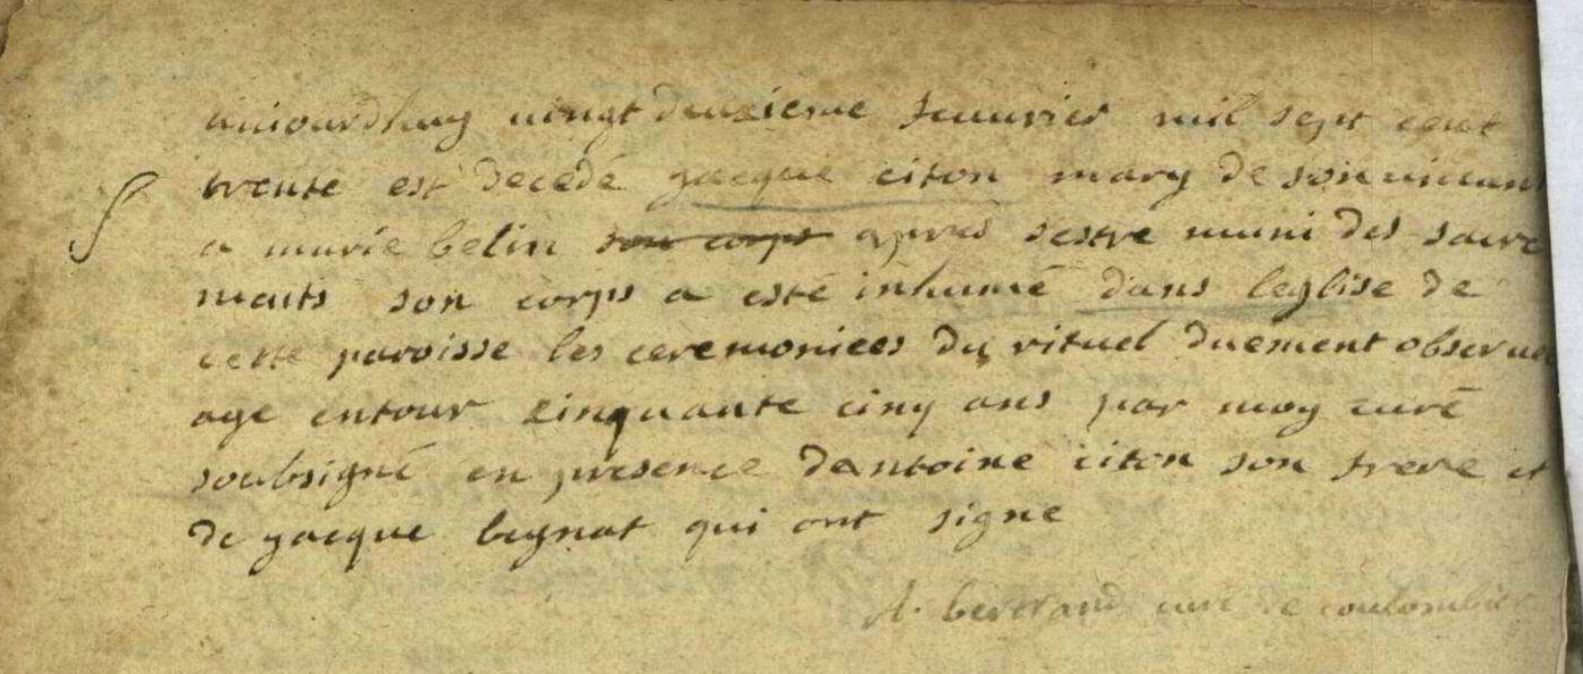 aujourdhuy vingt deuxieme januvier mil sept cent
trente est decedé jacque citon mary de son vivant
a marie belin son corps apres sestre muni des sacre
ments son corps a esté inhumé dans leglise de
cette paroisse les ceremoniees du rituel duement observe
age entour cinquante cinq ans par moy curé
soubsigné en presence dantoine citon son frere et
de jacque begnat qui ont signe
A. bertrand curé de coulombier